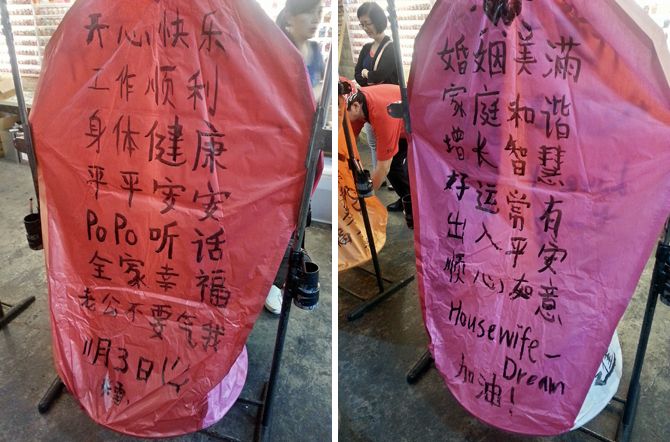 开心快乐
工作顺利
身体健康
平平安安
PoPo听话
全家幸福
老公不要气我
11月3日
婚姻美滿
家庭和谐
增长智慧
好运常有
出入平安
顺心如意
Housewife—
Dream
加油!